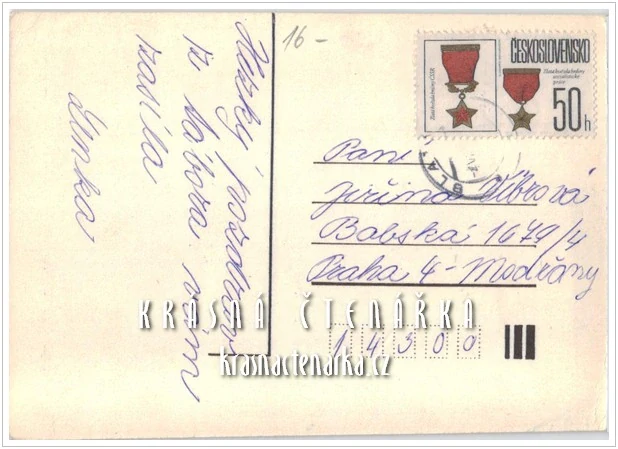 16-
Hezký pozdrav
z tábora vám
zasílá
Lenka
Zlatá hvězda hrdiny ČSSR
ČESKOSLOVENSKO
Zlatá hvězda hrdiny
socialistické
práce
50h
BLAT
Paní
Jiřina
Babská 1679/4
Praha 4-Modřany
14300
KRÁSNÁ ČTENÁŘKA
krasnactenarka.cz